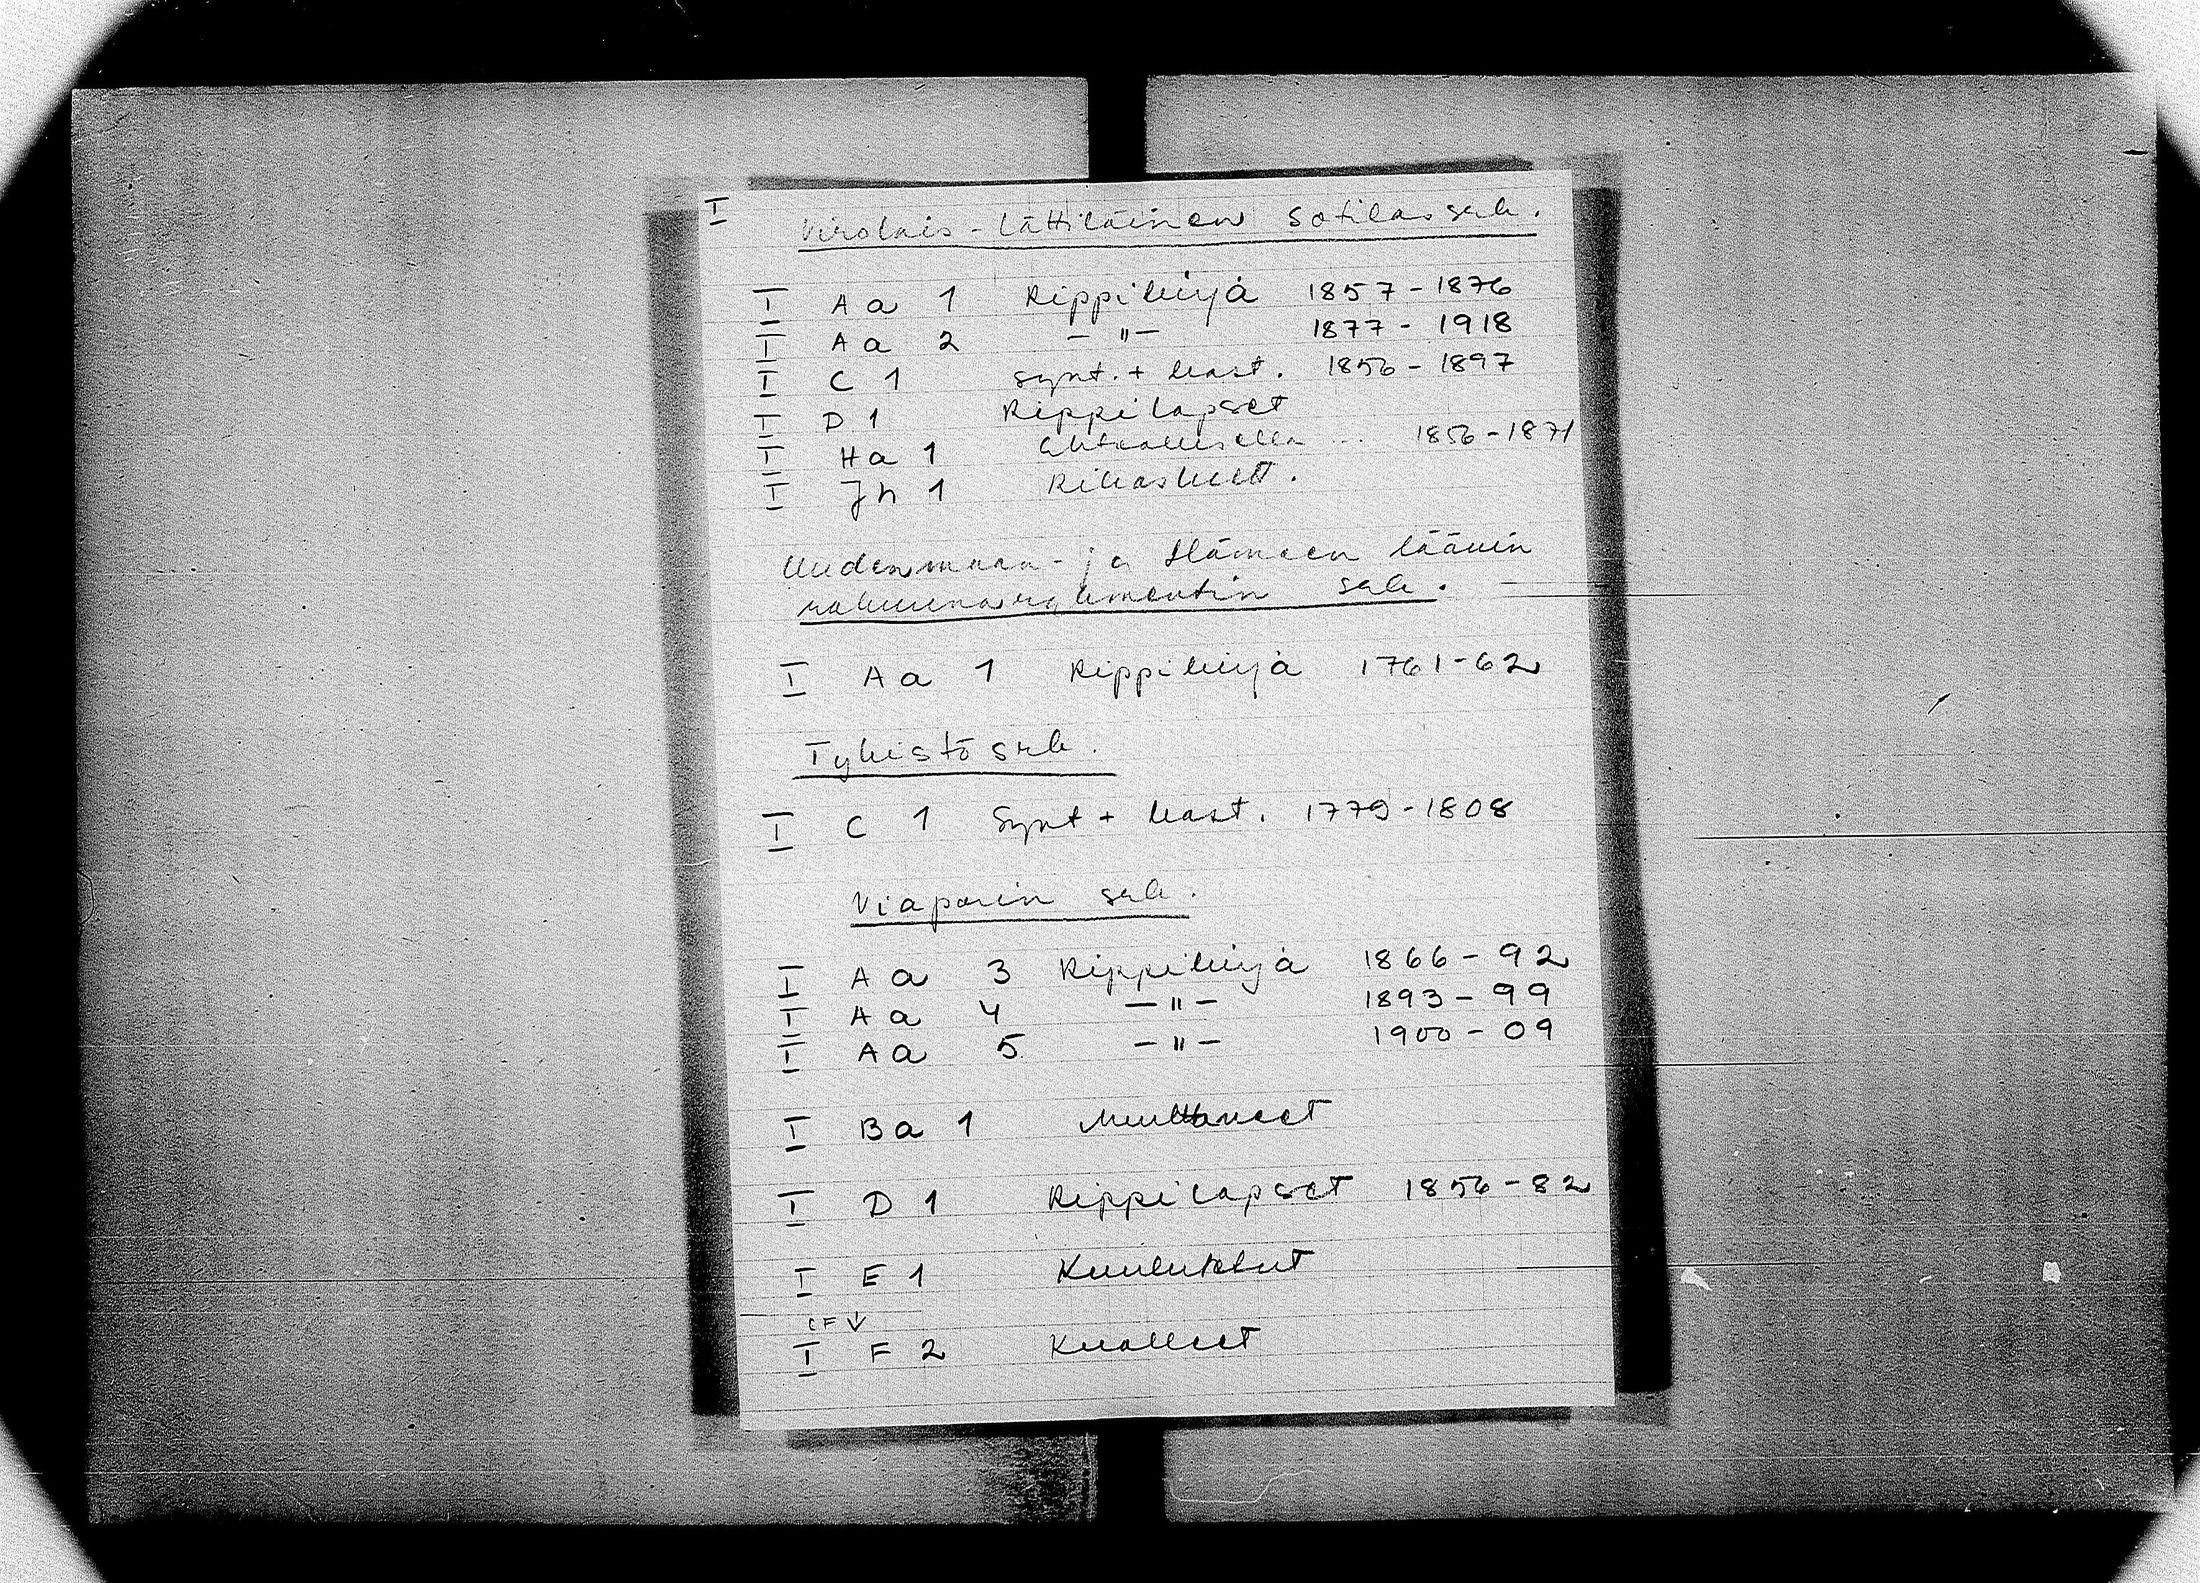 I Virolais-lättiläinen sotilassrk.
I Aa 1 Rippikirja 1857-1876
I Aa 2 -"- 1877-1918
I C 1 Synt. + kast. 1856-1897
I D 1 Rippilapset
I Ha 1 ... 1856-1871
I Jh 1 Rikoskert.
Uudenmaan- ja Hämeen läänin
rakuunarykmentin srk.
I Aa 1 Rippikirja 1761-62
Tykistösrk.
I C 1 Synt + kast. 1779-1808
Viaporin srk.
I Aa 3 Rippikirja 1866-92
I Aa 4 -"- 1893-99
I Aa 5 -"- 1900-09
I Ba 1 Muuttaneet
I D 1 Rippilapset 1856-82
I E 1 Kuulutelut
CF↓
I F 2 Kuolleet